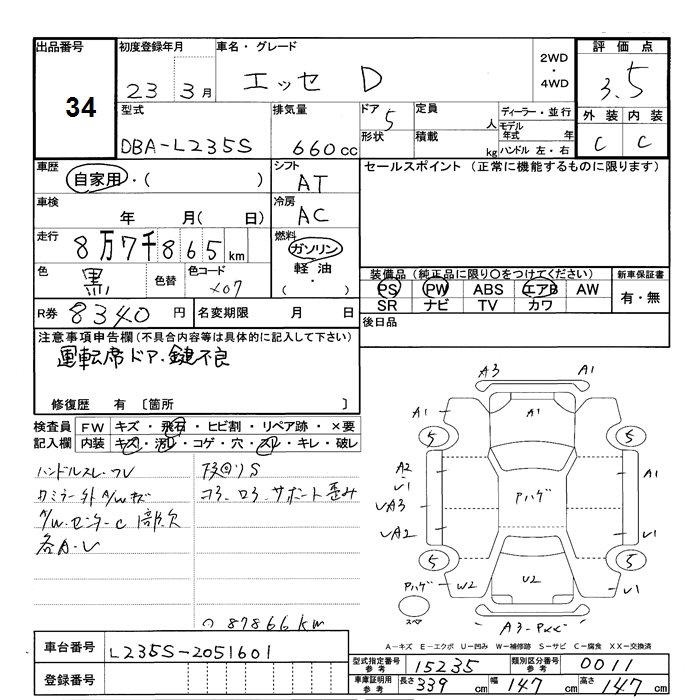 出品番号
34
初度登録年月
23 3月
車名・グレード
エッセ D
2WD
・
4WD
評価点
3.5
型式
DBA-L235S
排気量
660cc
ドア 5
形状
定員 人
積載 kg
ディーラー・並行
モデル年式 年
ハンドル 左・右
外装 内装
C C
車歴
自家用・( )
シフト
AT
セールスポイント (正常に機能するものに限ります)
車検
年 月( 日)
冷房
AC
走行
8万7千865km
燃料
ガソリン
軽油・
( )
色
黒
色替
色コード
X07
装備品 (純正品に限り○をつけてください)
PS PW ABS エアB AW
SR ナビ TV カワ
新車保証書
有・無
R券 8340円
名変期限 月 日
後日品
注意事項申告欄(不具合内容等は具体的に記入して下さい)
運転席ドア・鍵不良
修復歴 有 〔箇所 〕
検査員
記入欄
FW キズ・飛石・ヒビ割・リペア跡・×要
内装 キズ・汚レ・コゲ・穴・スレ・キレ・破レ
ハンドルスレ・フレ
ワミラー外A/Wキズ
各A・U
コろ、ロろ、サポート歪み
87866km
A3 A1
A1 A1 A1
5 5
A2
U1
A1
UA3
Pハゲ
UA2 U1
5 5
Pハゲ W2 U2 U1
スペア
A3・PXX
A−キズ E−エクボ U−凹み W−補修跡 S−サビ C−腐食 XX−交換済
車台番号 L235S-2051601
登録番号
型式指定番号
参考
15235
類別区分番号
参考
0011
車庫証明用
参考
長さ 339cm 幅 147cm 高さ 147cm